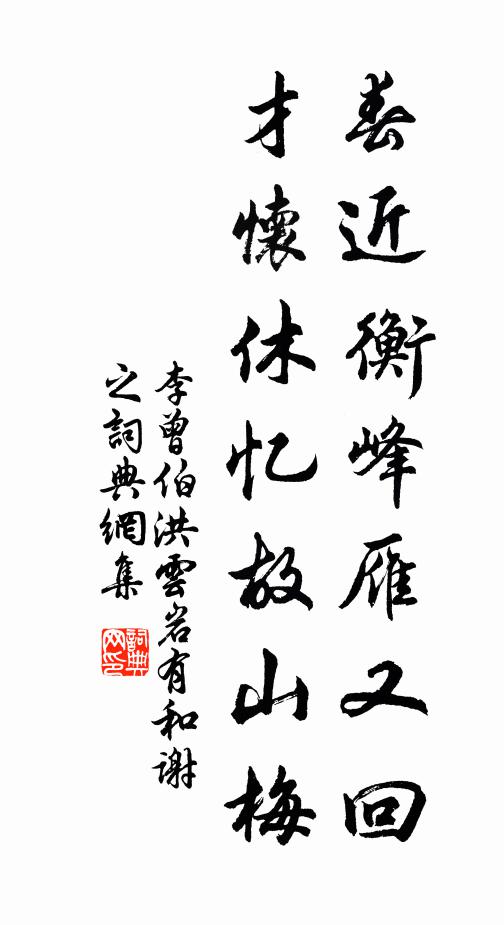 春近衡峰雁又回
才懷休忆故山梅
李曾伯洪雲岩有和謝
之詞典網集
詞典网印